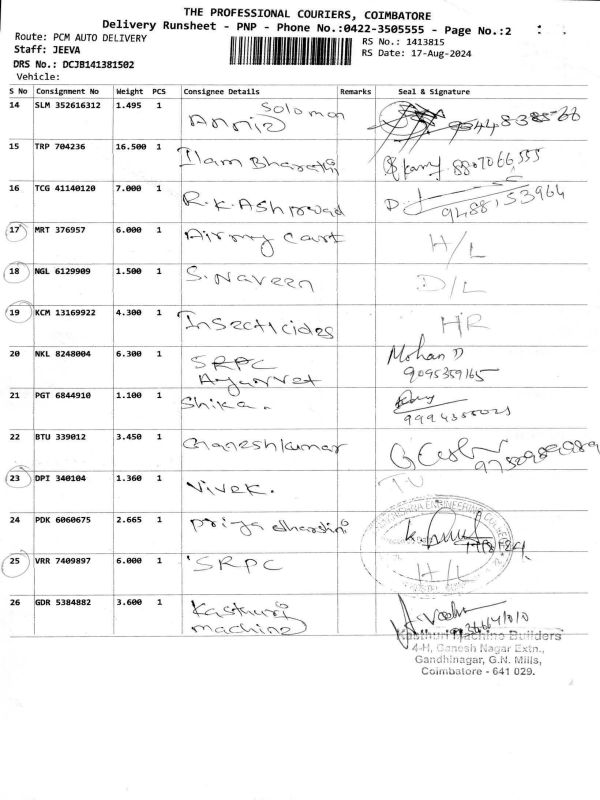 THE PROFESSIONAL COURIERS, COIMBATORE
Delivery Runsheet - PNP - Phone No.:0422-3505555 - Page No.:2
Route: PCM AUTO DELIVERY
RS No.: 1413815
Staff: JEEVA
RS Date: 17-Aug-2024
DRS No.: DCJB141381502
Vehicle:
S No Consignment No Weight PCS Consignee Details Remarks Seal & Signature
14 SLM 352616312 1.495 1 Solomon
15 TRP 704236 16.500 1 Ilam Bharathi 8807066555
16 TCG 41140120 7.000 1 R.K.Ashprvad D. 9488153964
17 MRT 376957 6.000 1 Airmy cart H/L
18 NGL 6129909 1.500 1 S. Naveen D/L
19 KCM 13169922 4.300 1 Insecticides HR
20 NKL 8248004 6.300 1 SRPC Mohan D
Ayurvet 9095359165
21 PGT 6844910 1.100 1 Shika.
22 BTU 339012 3.450 1 Ganeshkumar
23 DPI 340104 1.360 1 Vivek.
24 PDK 6060675 2.665 1 Priya dharshini
25 VRR 7409897 6.000 1 SRPC H/L
26 GDR 5384882 3.600 1 Kasthuri
machine
Kasthuri Machine Builders
4-H, Ganesh Nagar Extn.,
Gandhinagar, G.N. Mills,
Coimbatore - 641 029.